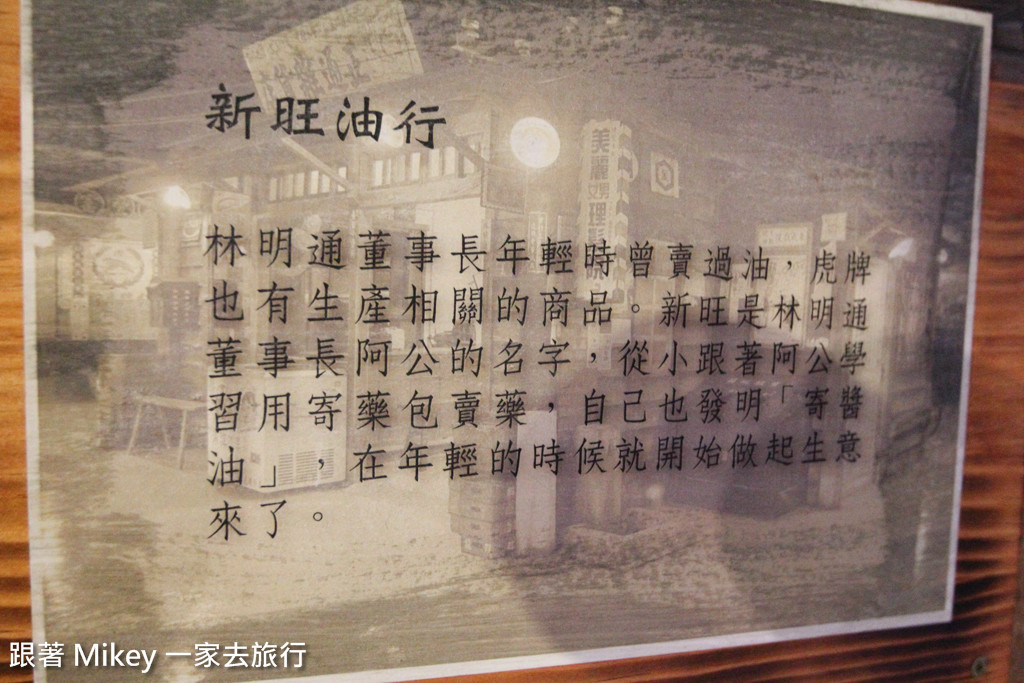 新旺油行
美麗
林明通董事長年輕時曾賣過油，虎牌
也有生產相關的商品。新旺是林明通
董事長阿公的名字，從小跟著阿公學
習用寄藥包賣藥，自己也發明「寄醬
油」，在年輕的時候就開始做起生意
來了。
跟著 Mikey 一家去旅行